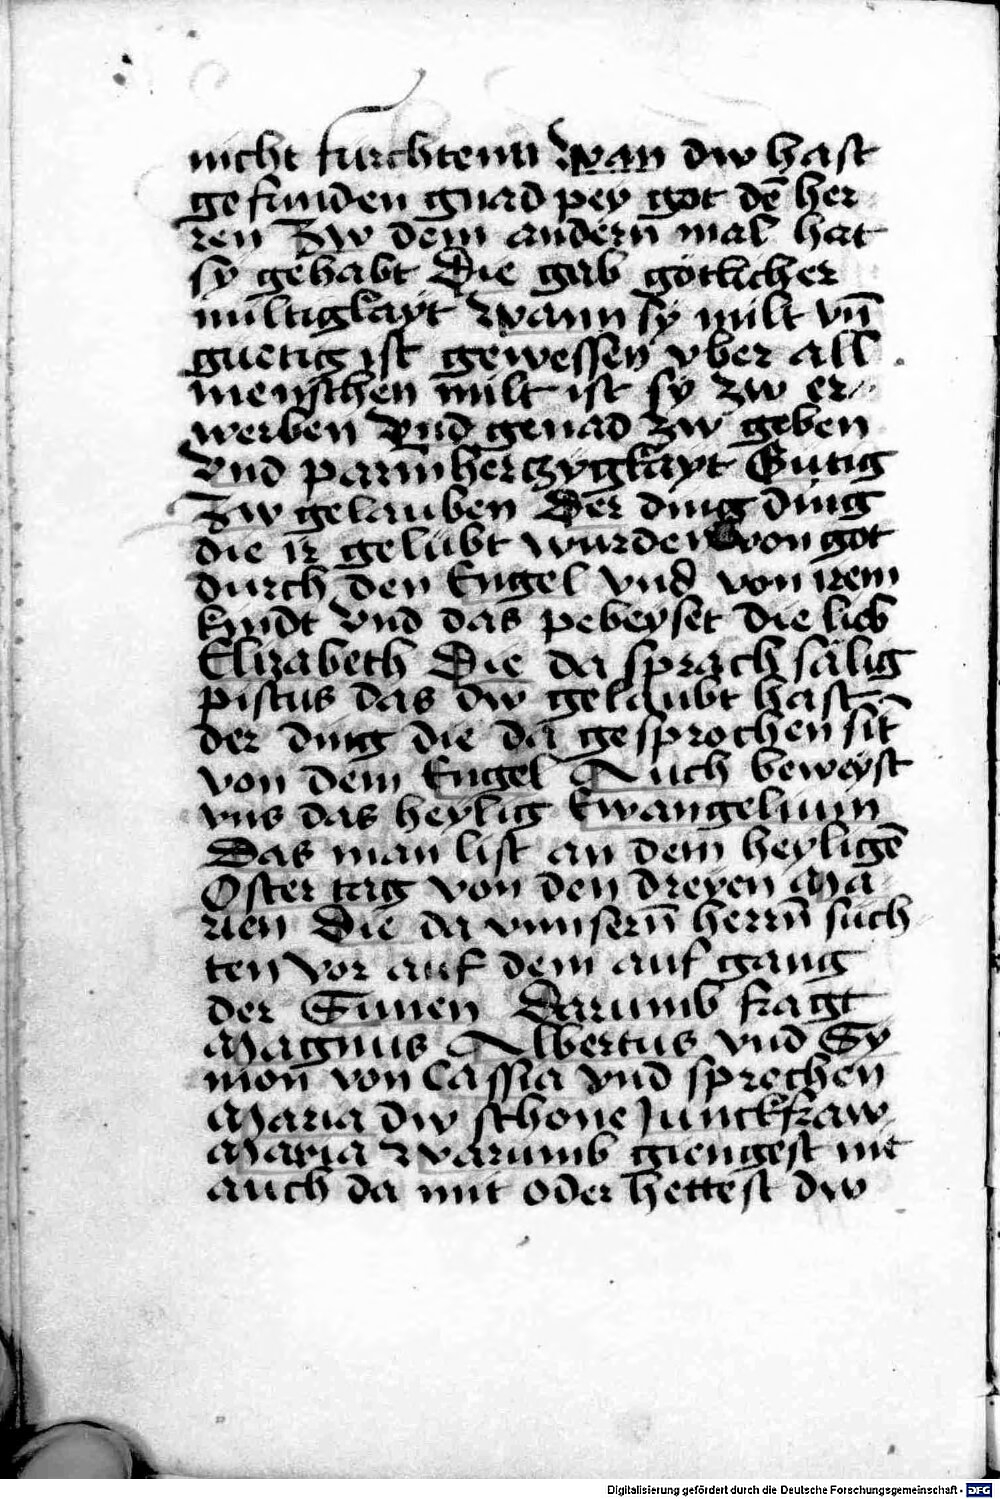 nicht furchtenn wan dw hast
gefunden gnad pey got dē her
ren Zw dem andern̄ mal hat
sy gehabt Die gab gotlicher
miltigkayt wann sy milt vn̄
guetig ist gewessen vber all
menschen milt ist sy zw er
werben Vnd genad zw geben
Vnd parmherczygkayt Gutig
Zw gelauben Der ding ding
die ir gelubt wurden von got
durch den Engel vnd von irem
kindt Vnd das pebeyset die lieb
Elizabeth Die da sprach sälig
pistus das dw gelaubt hast
der ding die da gesprochen sīt
von dem Engel Auch beweyst
vns das heylig Ewangelium
Das man list an dem heyligē
Oster tag von den dreyen Ma
rien Die da vnnsern̄ herrn̄ such
ten vor auf dem auf gang
der Sunen Darumb fragt
Magnus Albertus vnd Sy
mon von Cassia vnd sprechen
Maria dw schone Junckfraw
Maria Warumb giengest nit
auch da mit oder hettest dw
Digitalisierung gefördert durch die Deutsche Forschungsgemeinschaft - DFG